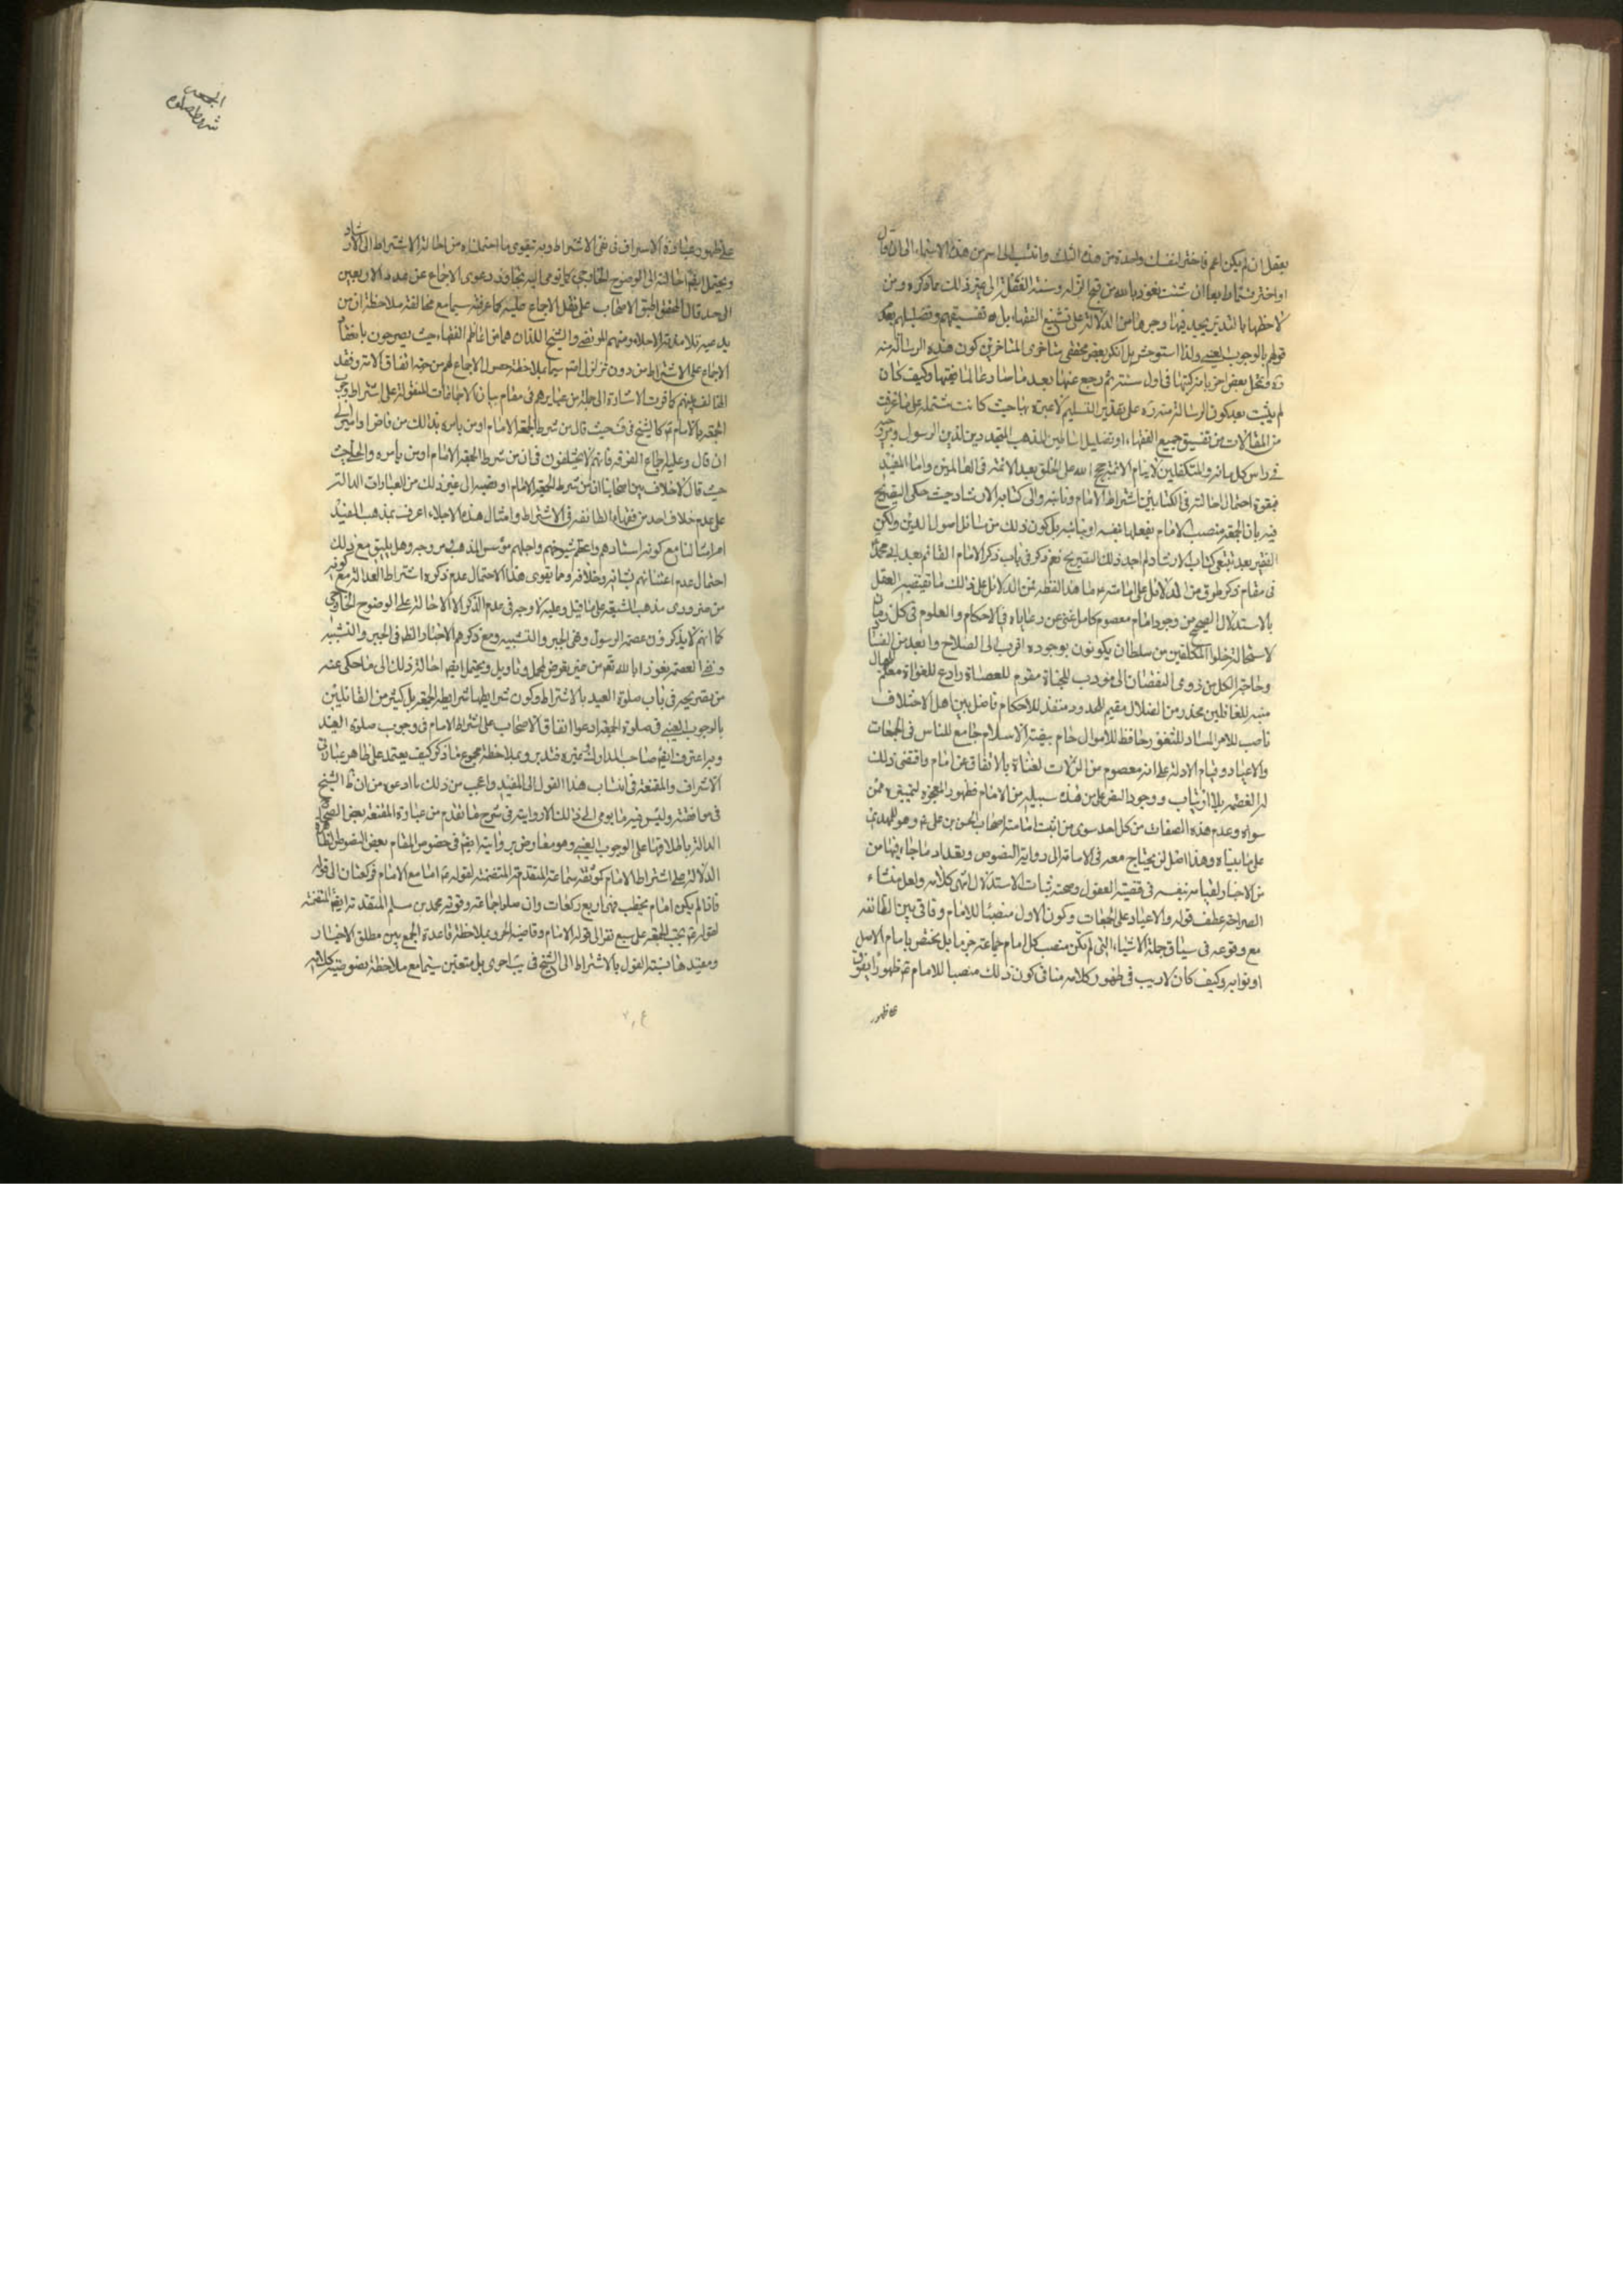 يعقل ان لم يكن اعم فاختر لنفسك واحدة من هذه الثلث وانتسب الى اسم من هذه الاسماء الى ان قال
او اختر ان شئت نعوذ بالله من قبح الزلة وسنة الغفلة الى غير ذلك مما ذكره ومن
لاحظها بالتدبر يجد فيها وجوها من الدلالة على تشنيع الفقهاء بل تفسيقهم وتضليلهم بعد
قولهم بالوجوب العيني ولذا استوحش بل انكر بعض محققي متأخري المتأخرين كون هذه الرسالة منه
ره وتخيل بعض اخر بانه كتبها في اول سنه ثم رجع عنها بعد ما صار عالما مجتهدا وكيف كان
لم يثبت بعد كون الرسالة منه ره على تقدير التسليم لا عبرة بها حيث كانت مشتملة على ما عرفت
من المقالات من تفسيق جميع الفقهاء او تضليل اساطين المذهب المجددين لدين الرسول ومروج
في راس كل مائة والمتكفلين لايتام الائمة حجج الله على الخلق بعد الائمة في العالمين واما المفيد
فبقوة احتمال احالته في الكتابين اشتراط الامام ونائبه والى كتابه الارشاد حيث حكى التصريح
فيه بان الجمعة منصب الامام يفعلها بنفسه او بنائبه بل كون ذلك من مسائل اصول الدين ولكن
الفقير بعد تتبعي كتاب الارشاد لم اجد ذلك التصريح نعم ذكر في باب ذكر الامام القائم بعد ابي محمد
في مقام ذكر طرق من الدلائل على امامته ما هذا لفظه فمن الدلائل على ذلك ما يقتضيه العقل
بالاستدلال الصحيح من وجود امام معصوم كامل غني عن رعاياه في الاحكام والعلوم في كل زمان
لاستحالة خلو المكلفين من سلطان يكونون بوجوده اقرب الى الصلاح وابعد من الفساد
وحاجة الكل من ذوي النقصان الى مؤدب للجناة مقوم للعصاة رادع للغواة معلم للجهال
منبه للغافلين محذر من الضلال مقيم للحدود منفذ للاحكام فاصل بين اهل الاختلاف
ناصب للامراء ساد للثغور حافظ للاموال حام بيضة الاسلام جامع للناس في الجمعات
والاعياد وقيام الادلة على انه معصوم من الزلات لغناه بالاتفاق عن امام واقتضى ذلك
له العصمة بلا ارتياب ووجود النص على من هذه سبيله من الامام وظهور المعجزة لتمييزه ممن
سواه وعدم هذه الصفات من كل احد سوى من اثبت امامته اصحاب الحسن بن علي ع وهو المهدي
على ما بيناه وهذا اصل لن يحتاج معه في الامامة الى رواية النصوص وتعداد ما جاء فيها من
من الاخبار لقيامه بنفسه في قضية العقول وصحته بثبات الاستدلال انتهى كلامه ولعل منشاء
الصراحة عطف قوله والاعياد على الجمعات وكون الاول منصبا للامام وفاقي بين الطائفة
مع وقوعه في سياق جملة الاشياء التي لم يكن منصب كل امام جماعة جزما بل يختص بامام الاصل
او نوابه وكيف كان لا ريب في ظهور كلامه هنا في كون ذلك منصبا للامام ثم ظهورا يفوق
على ظهور
الجمعه
شروط صلوة
على ظهور عبارة الاشراف في نفي الاشتراط وبه تقوى ما احتملناه من احالة الاشتراط الى الارشاد
ويحتمل ايضا احالته الى الوضوح الخارجي كما يومي اليه تجاوز دعوى الاجماع عن عدد الاربعين
الى حد قال المحقق اطبق الاصحاب على نقل الاجماع عليه كما عرفته سيما مع مخالفته ملاحظة ان من
تلامذته الاجلاء ومنهم المرتضى والشيخ اللذان هما من اعاظم الفقهاء حيث يصرحون بانعقاد
الاجماع على الاشتراط من دون تزلزل منهم سيما بملاحظة حصول الاجماع لهم من جهة اتفاق الامة وفقد
المخالف بينهم كما مرت الاشارة الى جملة من عبايرهم في مقام بيان الاجماعات المنقولة على اشتراط وجوب
الجمعة بالامام كالشيخ في ف حيث قال من شرط الجمعة الامام او من يامره بذلك من قاض او امير الى
ان قال وعليه اجماع الفرقة فانهم لا يختلفون في ان من شرط الجمعة الامام او من يامره والحلي حيث
حيث قال لا خلاف بين اصحابنا ان من شرط الجمعة الامام او نصبه الى غير ذلك من العبارات الدالة
على عدم خلاف احد من فقهاء الطائفة في الاشتراط وامثال هذه الاجلاء اعرف بمذهب المفيد
امن امثالنا مع كونه استادهم واعظم شيوخهم واجلهم مؤسس المذهب ومروجه وهل يليق مع ذلك
احتمال عدم اعتنائهم بشانه وخلافه ومما يقوى هذا الاحتمال عدم ذكره اشتراط العدالة مع كونه
من ضروري مذهب الشيعة على ما قيل وعليه لا وجه في عدم الذكر الا الاحالة على الوضوح الخارجي
كما انهم لا يذكرون عصمة الرسول ونفي الجبر والتشبيه ومع ذكرهم الاخبار الظ في الجبر والتشبيه
ونفي العصمة نعوذ بالله تعم من غير تعرض لمحمل وتاويل ويحتمل ايضا احالة ذلك الى ما حكي عنه
من تصريحه في باب صلوة العيد بالاشتراط وكون شرايطها شرايط الجمعة بل كثير من القائلين
بالوجوب العيني في صلوة الجمعة ادعوا اتفاق الاصحاب على اشتراط الامام في وجوب صلوة العيد
وبه اعترف ايضا صاحب المدارك وغيره فتدبر وبملاحظة مجموع ما ذكر كيف يعتمد على ظاهر عبارتي
الاشراف والمقنعة في انتساب هذا القول الى المفيد واعجب من ذلك ما ادعى من ان ظ الشيخ
في موافقته وليس فيه ما يومي الى ذلك الا روايته في شرح ما تقدم من عبارة المقنعة بعض الصحاح
الدالة باطلاقها على الوجوب العيني وهو معارض بروايته ايضا في خصوص المقام بعض النصوص الظاهرة
الدلالة على اشتراط الامام كموثقة سماعة المتقدمة المتضمنة لقوله ع اما مع الامام فركعتان الى قوله
فاذا لم يكن امام يخطب فهي اربع ركعات وان صلوا جماعة وقوية محمد بن مسلم المتقدمة ايضا المتضمنة
لقوله ع تجب الجمعة على سبع نفر الى قوله الامام وقاضيه الخ وبملاحظة قاعدة الجمع بين مطلق الاخبار
ومقيدها نسبته القول بالاشتراط الى الشيخ في يب احرى بل متعين سيما مع ملاحظة نصوصية كلامه